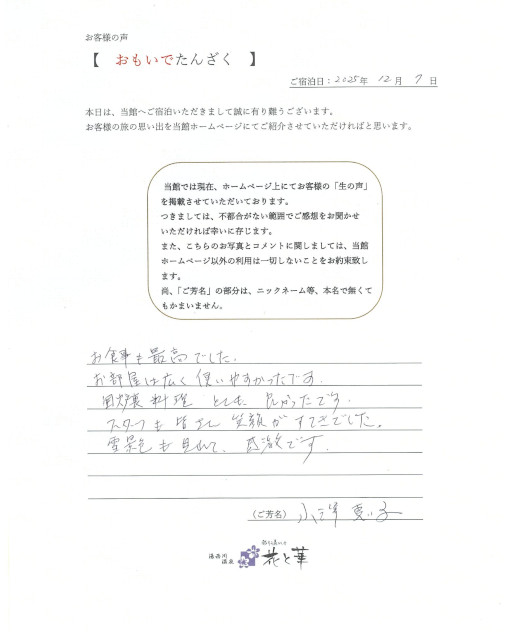 お客様の声
【 おもいでたんざく 】
ご宿泊日：2025年 12月 7日
本日は、当館へご宿泊いただきまして誠に有り難うございます。
お客様の旅の思い出を当館ホームページにてご紹介させていただければと思います。
当館では現在、ホームページ上にてお客様の「生の声」
を掲載させていただいております。
つきましては、不都合がない範囲でご感想をお聞かせ
いただければ幸いに存じます。
また、こちらのお写真とコメントに関しましては、当館
ホームページ以外の利用は一切しないことをお約束致し
ます。
尚、「ご芳名」の部分は、ニックネーム等、本名で無くて
もかまいません。
お食事も最高でした。
お部屋は広く使いやすかったです。
囲炉裏料理 とても 良かったです。
スタッフも皆さん 笑顔がすてきでした。
雪景色も見れて、感激です。
（ご芳名） 小澤
湯西川
温泉
花と華